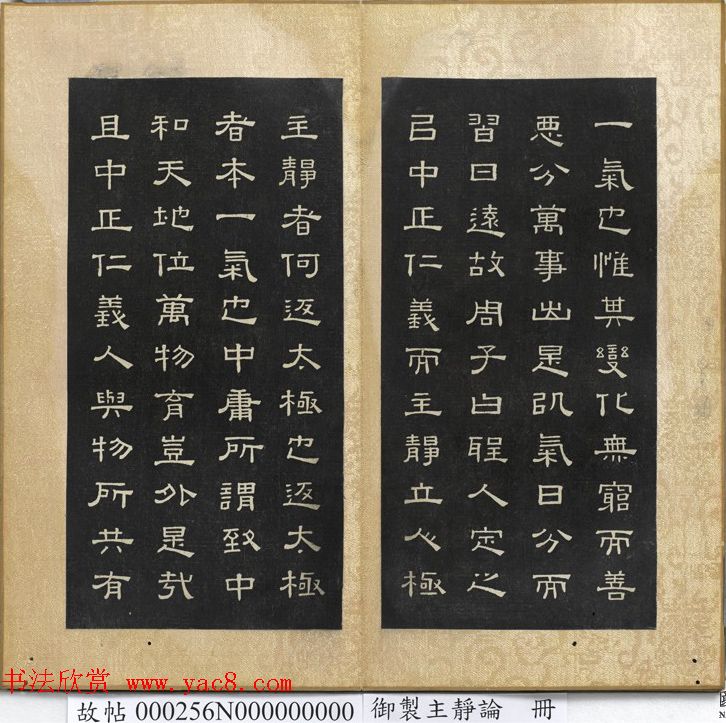 一氣也惟其變化無窮而善
惡分萬事出是以氣日分而
習日遠故周子曰聖人定之
㠯中正仁義而主靜立人極
主靜者何返太極也返太極
者本一氣也中庸所謂致中
和天地位萬物育豈外是哉
且中正仁義人與物所共有
书法欣赏 www.yac8.com
故帖 000256N000000000
御製主靜論 冊